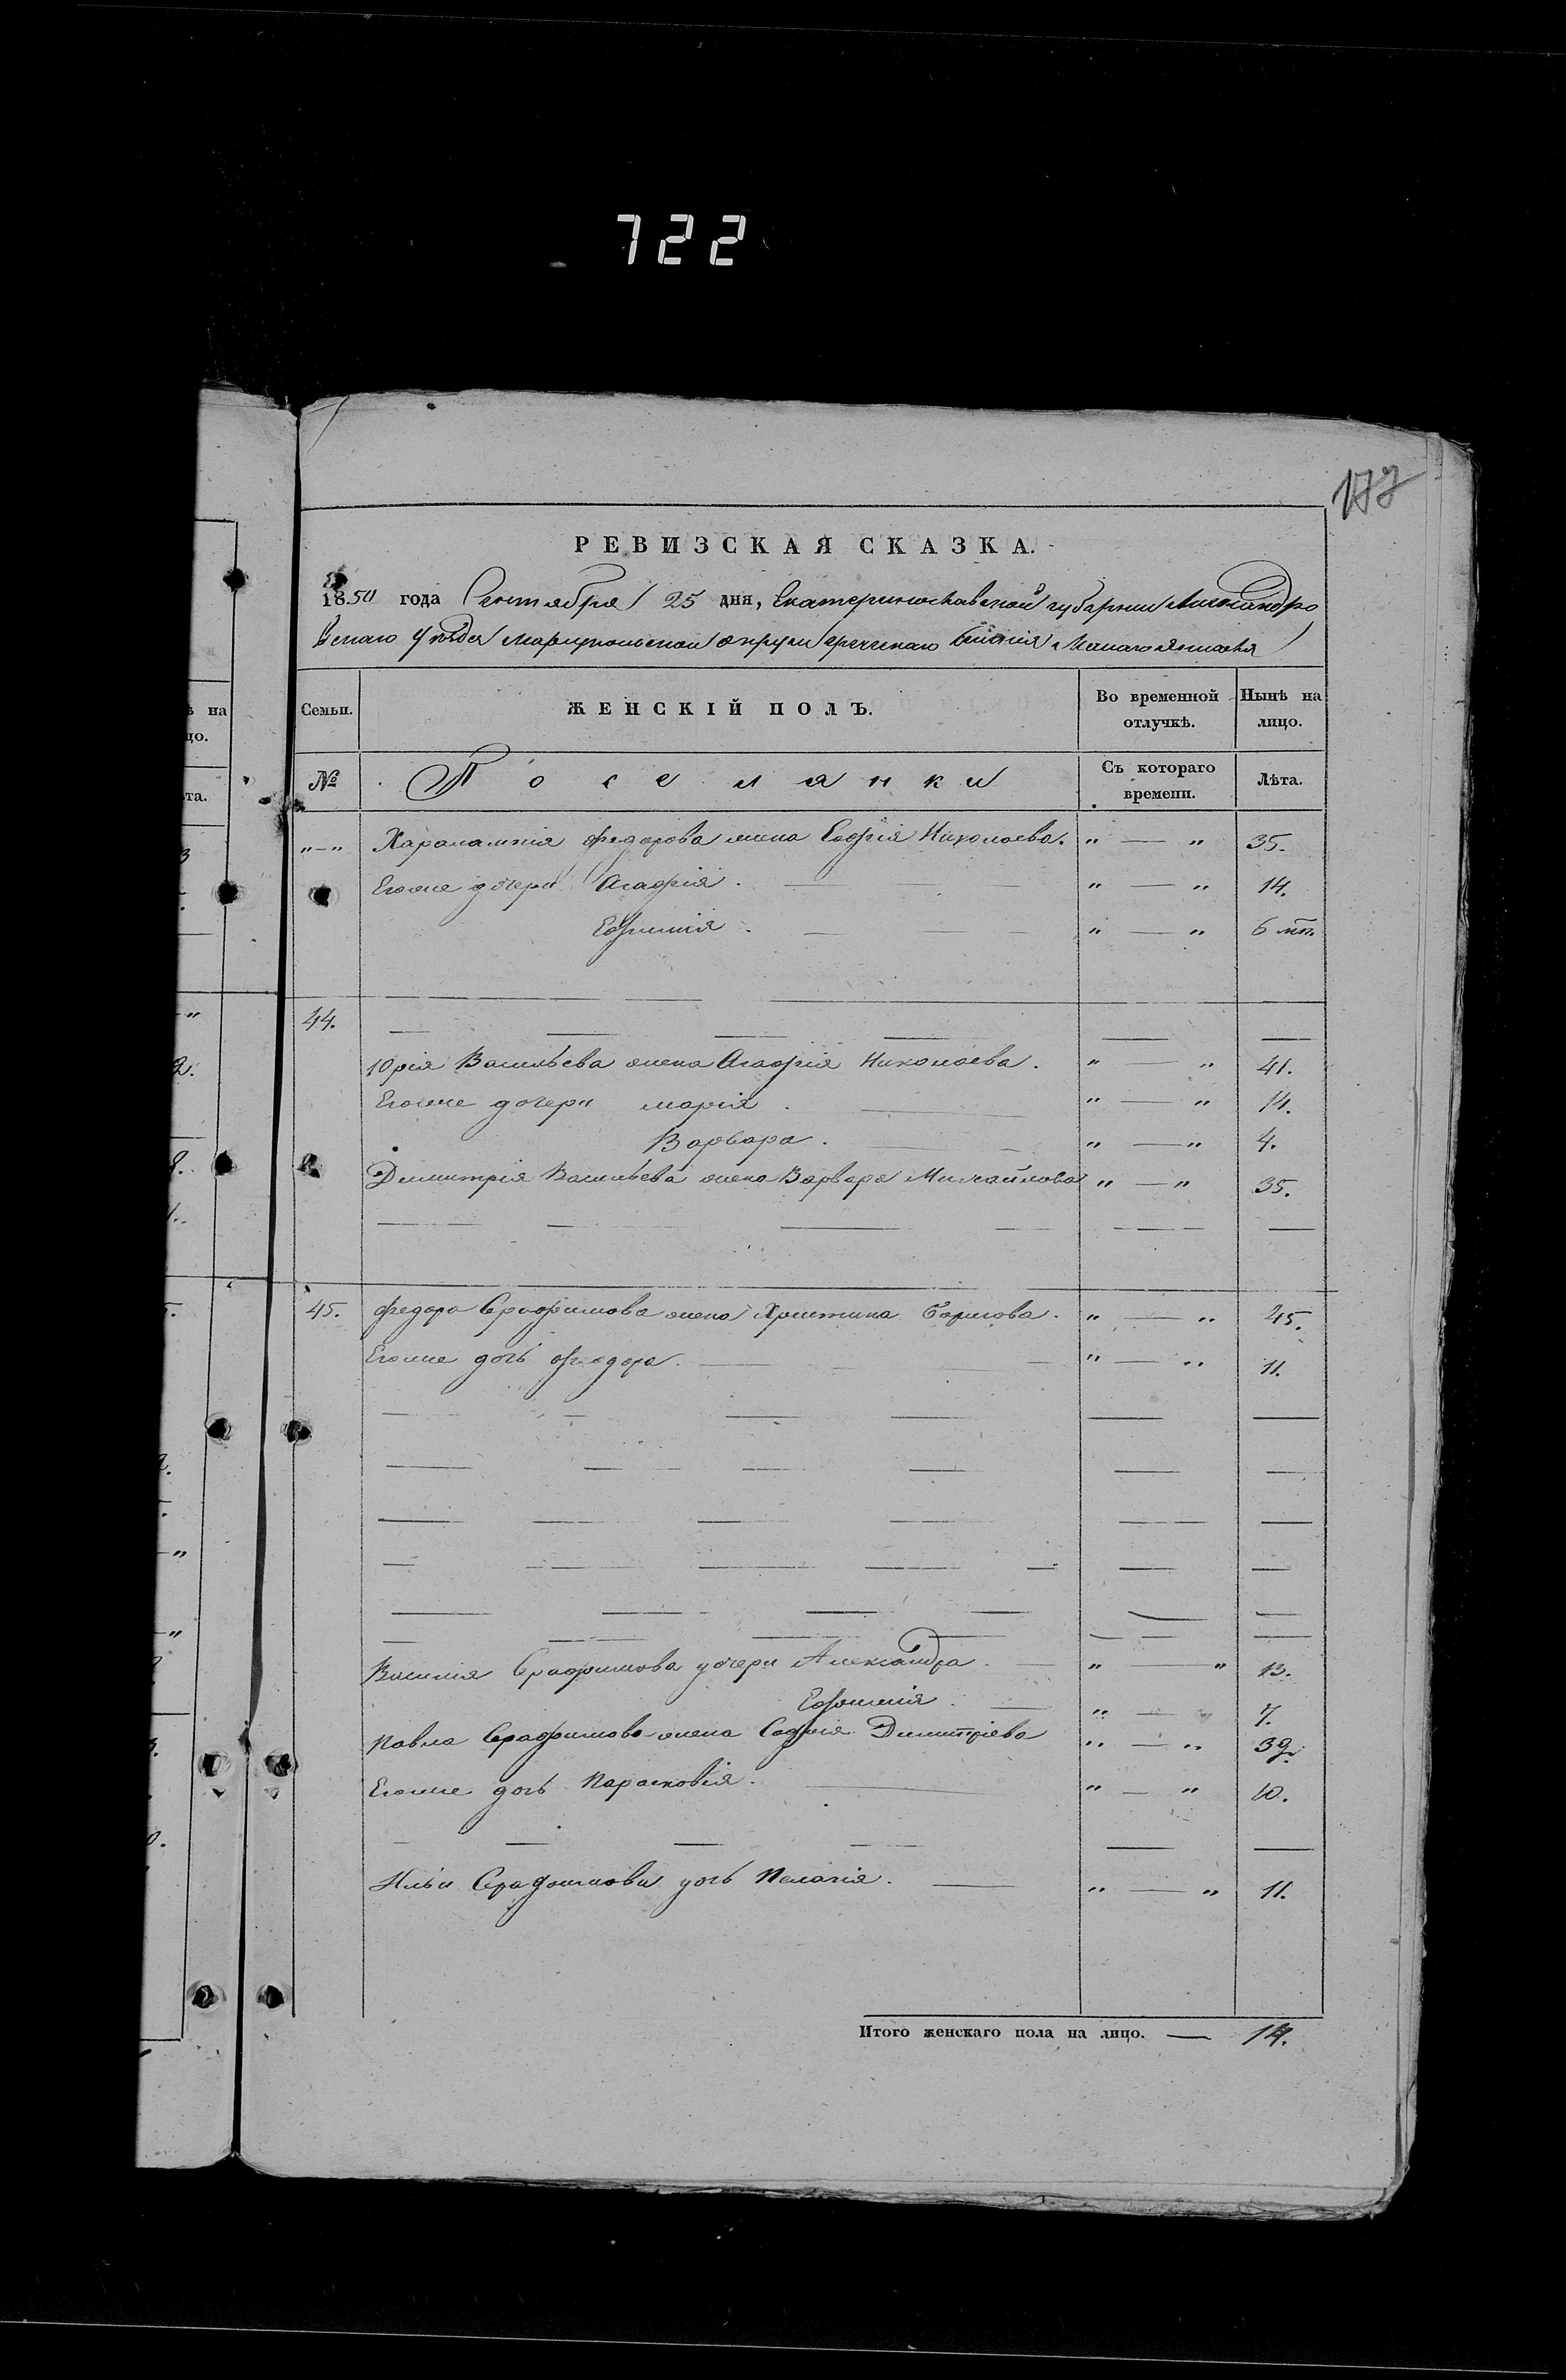 722
177
РЕВИЗСКАЯ СКАЗКА.
1850 года Сентября 25 дня, Екатеринославской губернии Александро
вскаго уѣзда Мариупольскои округи греческаго селенія Малаго Янисаля
Семьи. ЖЕНСКІЙ ПОЛЪ. Во временной отлучкѣ. Нынѣ на лицо.
№ Поселянки Съ котораго времени. Лѣта.
"—" Харалампія Федорова жена Софія Николаева. " — " 35.
Егоже дочери Агафія. " — " 14.
Ефимія. " — " 6 мѣ.
44.
Юрія Васильева жена Агафія Николаева. " — " 41.
Егоже дочери Марія. " — " 14.
Варвара. " — " 4.
Димитрія Васильева жена Варвара Михайлова " — " 35.
45. Федора Серафимова жена Христина Борисова. " — " 45.
Егоже дочь Феодора. " — " 11.
Василія Серафимова дочери Александра. " — " 13.
Ефимія. " — " 7.
Павла Серафимова жена Софія Димитріева " — " 39.
Егоже дочь Парасковія. " — " 10.
Ильи Серафимова дочь Пелагія. " — " 11.
Итого женскаго пола на лицо. — 14.